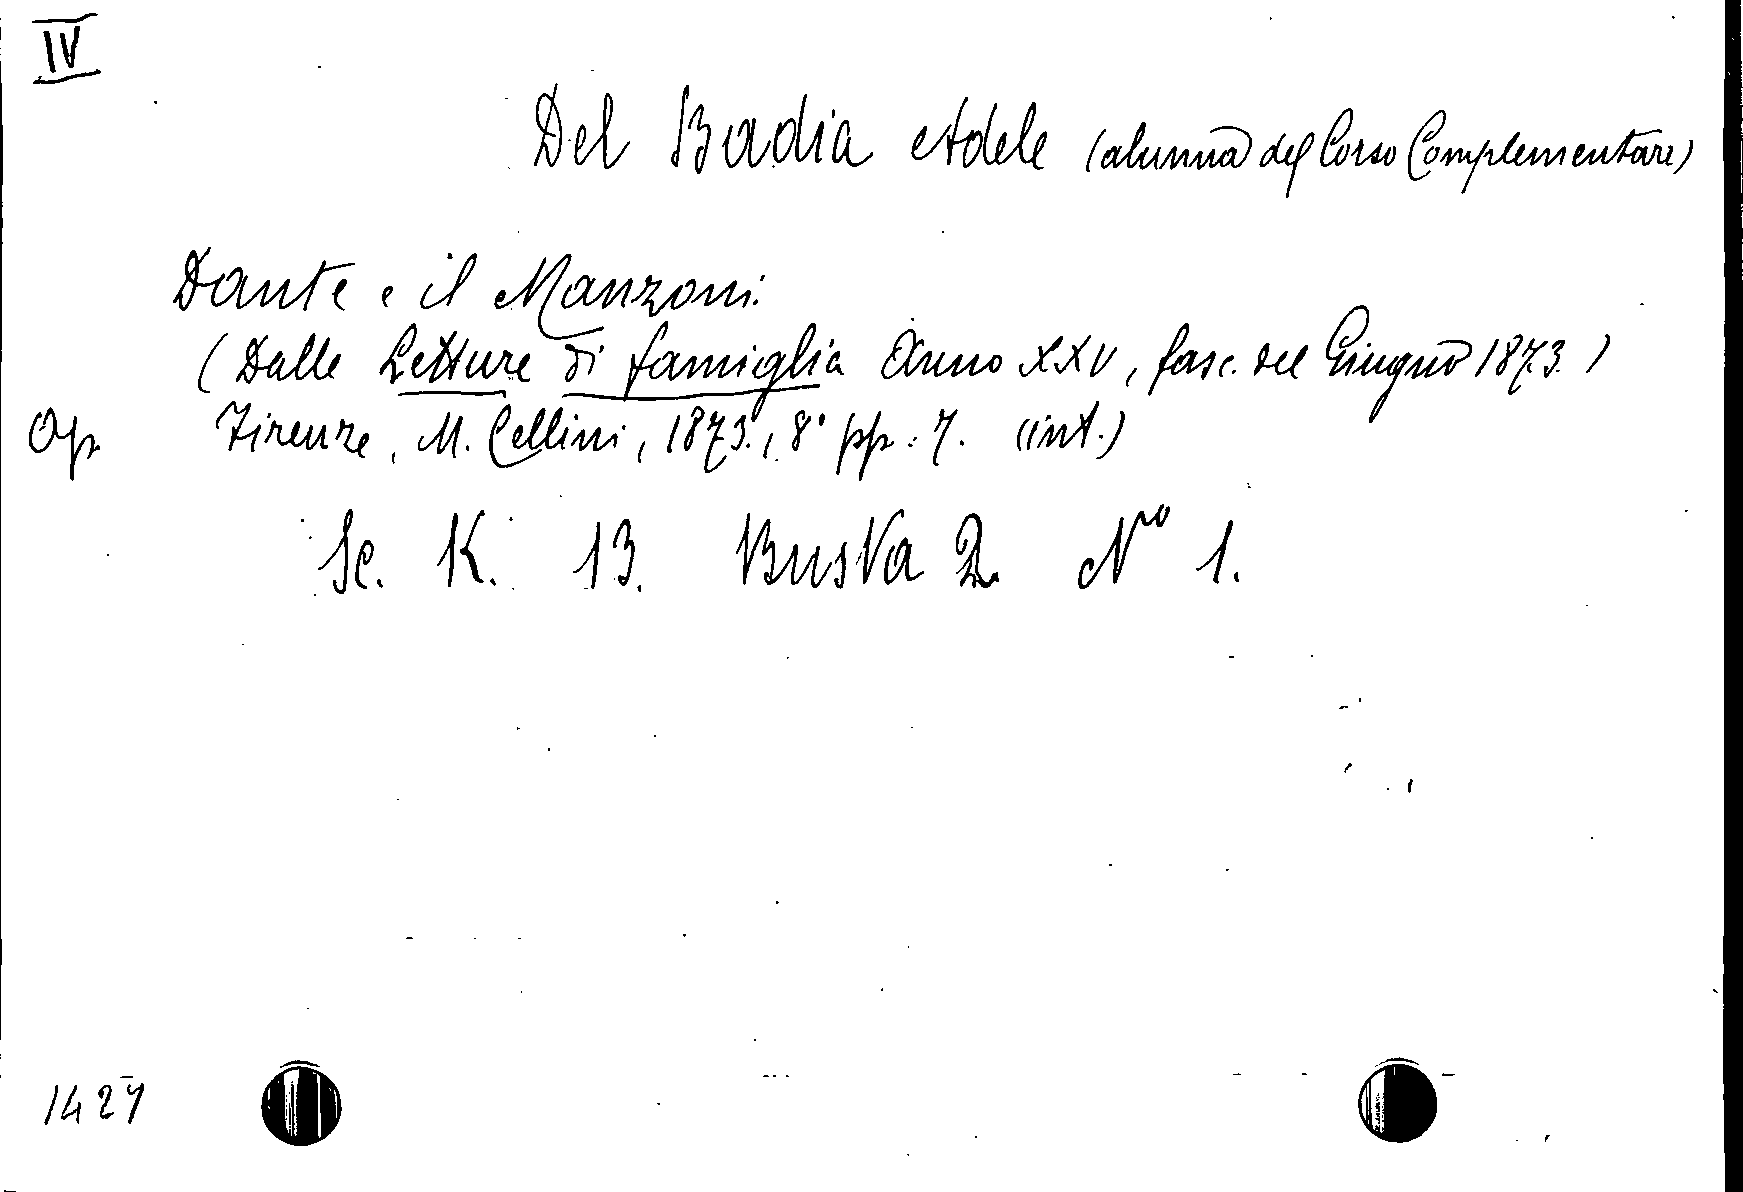 IV
Del Badia Adele (alunna del Corso Complementare)
Dante e il Manzoni.
(Dalle Letture di famiglia Anno XXV, fasc. del Giugno 1873.)
Op. Firenze, M. Cellini, 1873., 8° pp. 7. (int.)
Sc. K. 13. Busta 2. No 1.
1427